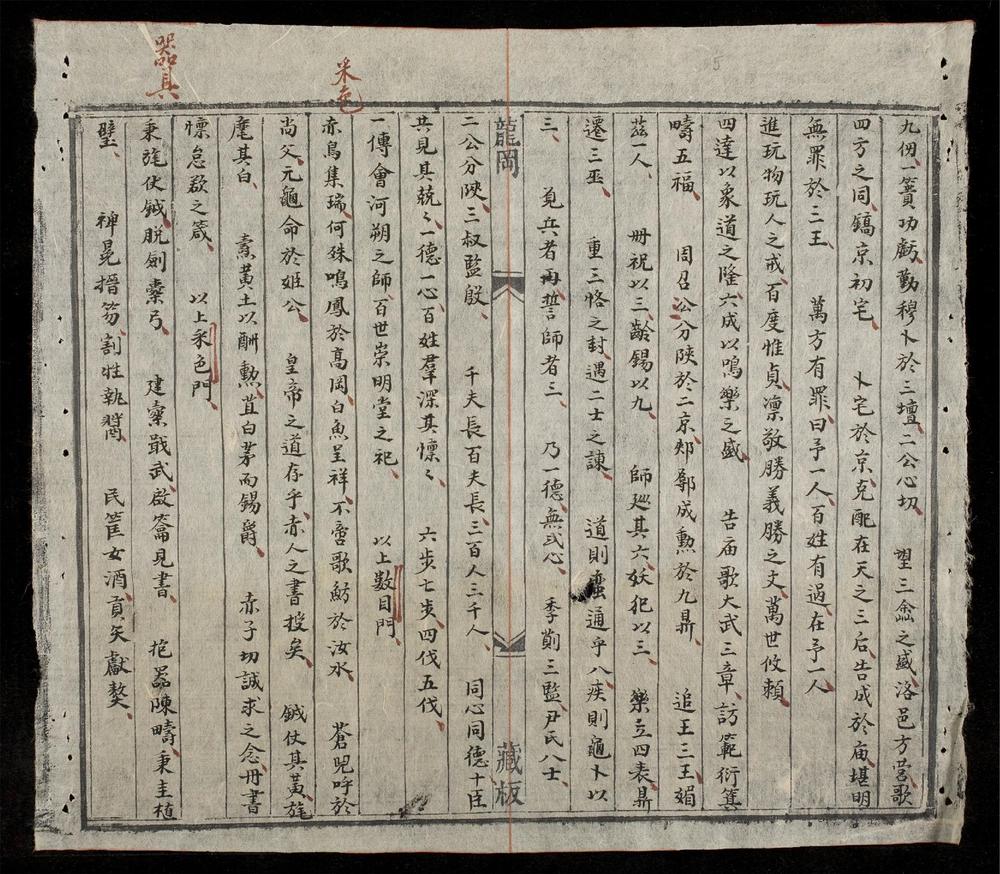 器具
采色
九仞一簣功虧勤穆卜於三壇二公心切 望三龕之盛洛邑方営歌
四方之同鎬京初宅 卜宅於京克配在天之三后告成於庙堪明
無罪於三王 萬方有罪曰予一人百姓有過在予一人
進玩物玩人之戒百度惟貞凛敬勝義勝之文萬世攸賴
四達以象道之隆六成以鳴樂之盛 告庙歌大武三章訪範衍箕
疇五福 周召公分陜於二京郟鄏成勳於九鼎 追王三王媚
茲一人 冊祝以三齡錫以九 師廵其六妖犯以三 樂立四表鼎
遷三巫 重三恪之封遇二士之諫 道則蛮通乎八疾則龜卜以
三 覓兵者再誓師者三 乃一德無弍心 季勦三監尹氏八士
龍岡 藏板
二公分陜三叔監殷 千夫長百夫長三百人三千人 同心同德十臣
共見其兢〻一德一心百姓羣深其懍〻 六步七步四伐五伐
一傳會河朔之師百世崇明堂之祀 以上數目門
赤鳥集瑞何殊鳴鳳於高岡白魚呈祥不啻歌魴於汝水 蒼兕呼於
尚父元龜命於姬公 皇帝之道存乎赤人之書授矣 鉞仗其黃旄
麾其白 橐黃土以酬勲苴白茅而錫爵 赤子切誠求之念冊書
懍怠欲之箴 以上采色門
秉旄仗鉞脱劍橐弓 建櫜戢武啟籥見書 抱器陳疇秉圭植
璧 裨冕搢笏割牲執醬 民筐女酒貢矢獻獒